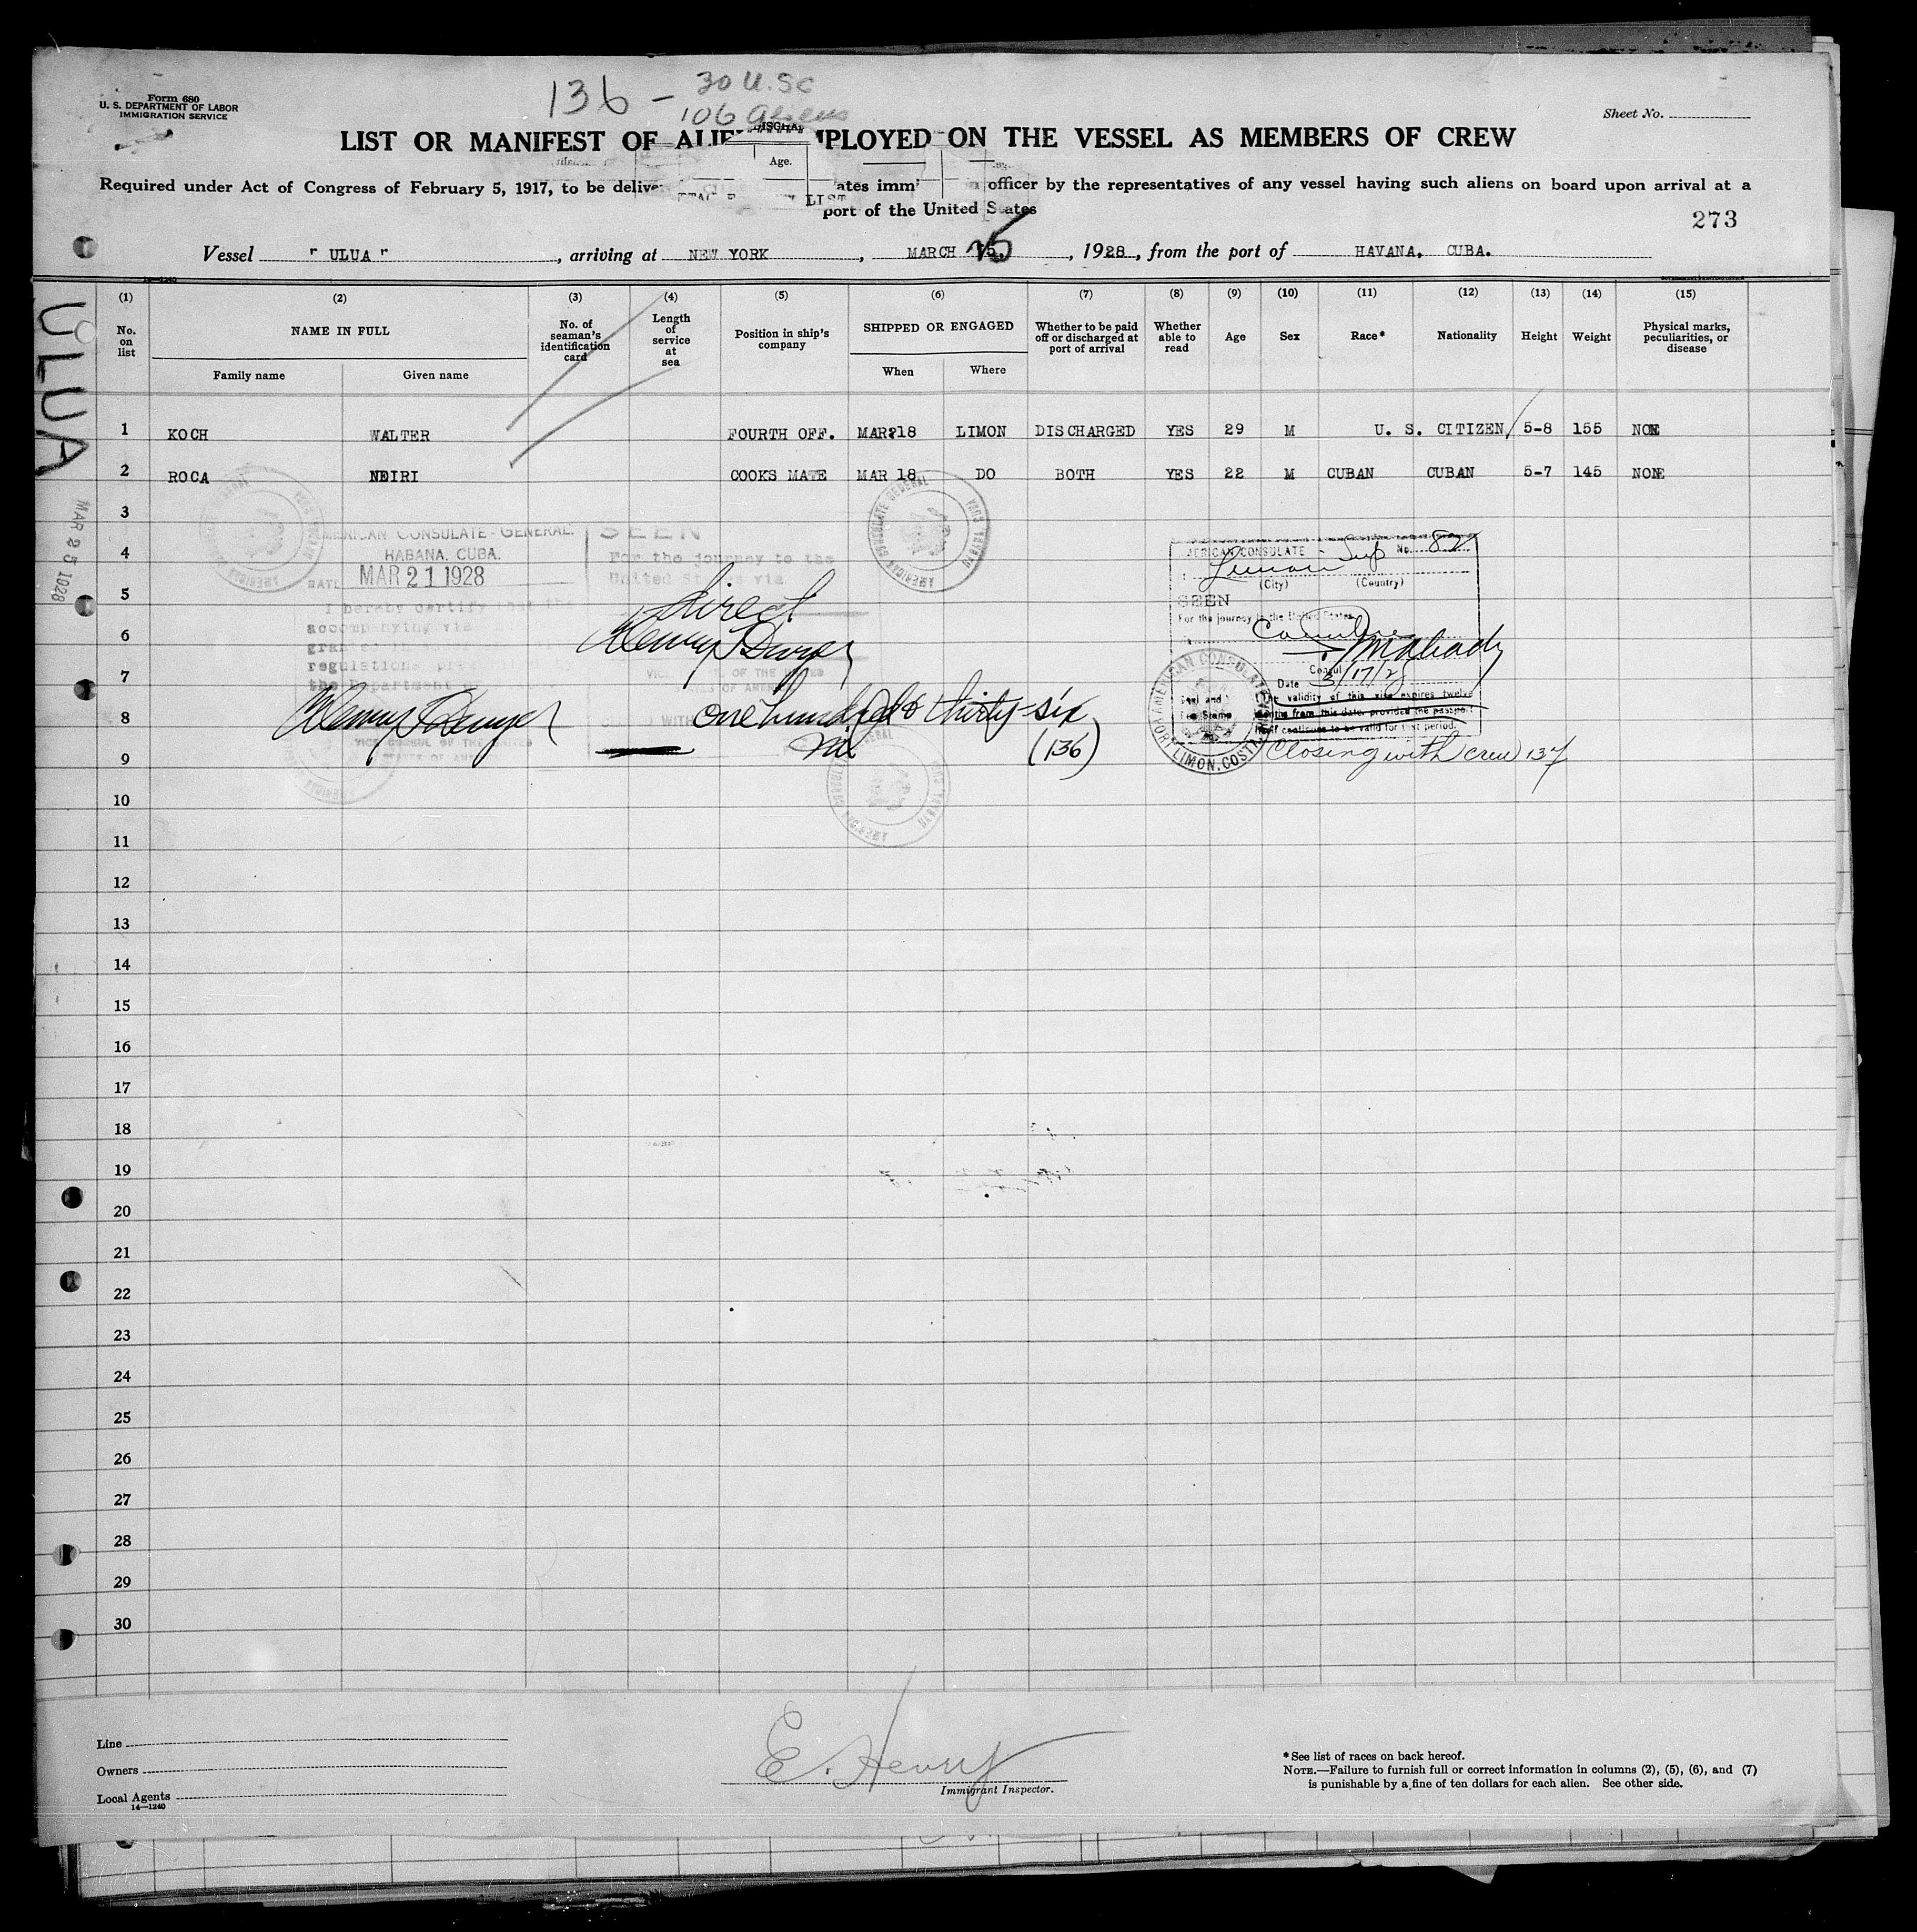 136 - 30 U.SC
106 aliens
Form 680
U. S. DEPARTMENT OF LABOR
IMMIGRATION SERVICE
Sheet No.
LIST OR MANIFEST OF ALIE MPLOYED ON THE VESSEL AS MEMBERS OF CREW
Age.
Required under Act of Congress of February 5, 1917, to be delive ates imm officer by the representatives of any vessel having such aliens on board upon arrival at a
LIST
port of the United States
273
Vessel " ULUA " , arriving at NEW YORK , MARCH 25 , 1928 , from the port of HAVANA, CUBA.
ULUA
MAR 25 1928
(1) (2) (3) (4) (5) (6) (7) (8) (9) (10) (11) (12) (13) (14) (15)
No. on list NAME IN FULL No. of seaman's identification card Length of service at sea Position in ship's company SHIPPED OR ENGAGED Whether to be paid off or discharged at port of arrival Whether able to read Age Sex Race* Nationality Height Weight Physical marks, peculiarities, or disease
Family name Given name When Where
1 KOCH WALTER FOURTH OFF. MAR 18 LIMON DISCHARGED YES 29 M U. S. CITIZEN 5-8 155 NONE
2 ROCA NDIRI COOKS MATE MAR 18 DO BOTH YES 22 M CUBAN CUBAN 5-7 145 NONE
3
4
5
6
7
8
9
10
11
12
13
14
15
16
17
18
19
20
21
22
23
24
25
26
27
28
29
30
AMERICAN CONSULATE-GENERAL.
HABANA, CUBA.
MAR 21 1928
I hereby certify that the
accompanying
regulations
the Department of
SEEN
For the journey to the
United States via
direct
one hundred & thirty-six
nil (136)
AMERICAN CONSULATE - Sup No. 82
Limon
(City) (Country)
SEEN
For the journey to the United States
Consul
Date 3/17/28
The validity of this visa expires twelve
months from this date, provided the passport
itself continues to be valid for that period.
AMERICAN CONSULATE
PORT LIMON, COSTA RICA
Closing with crew 137
Line
Owners
Local Agents
14—1240
E. Henry
Immigrant Inspector.
*See list of races on back hereof.
NOTE.—Failure to furnish full or correct information in columns (2), (5), (6), and (7)
is punishable by a fine of ten dollars for each alien. See other side.